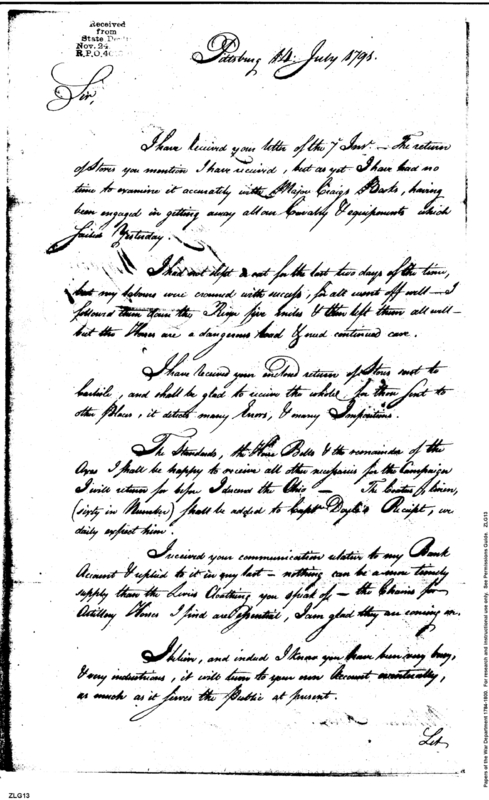 Received
from
State Dept
Nov. 24
R.P.O. 40
Pittsburg 14 July 1791.
Sir,
I have Received your letter of the 7 Inst. — The return
of Stores you mention I have received, but as yet I have had no
time to examine it accurately with Major Craigs Books, having
been engaged in getting away all our Cavalry & equipments which
sailed Yesterday.
I had not slept out for the last two days of the time,
but my labours were crowned with success, for all went off well — I
followed them down the River five miles & then left them all well —
but the Horses are a dangerous load & need continued care.
I have Received your inclosed return of Stores sent to
Carlisle, and shall be glad to receive the whole for them sent to
other Places, it detects many Errors, & many Impositions.
The Standards, the Horse Bells & the remainder of the
Axes I shall be happy to receive all other necessaries for the Campaign
I will return for before I descend the Ohio — The Coatees of linen,
(sixty in Number) shall be added to Capt Doyle's Receipt, we
daily expect him.
I received your communication relative to my Bank
Account & replied to it in my last — nothing can be a more timely
supply than the Levis Cloathing you speak of — the Chains for
Artillery Horses I find are Essential, I am glad they are coming on.
I believe, and indeed I know you have been very busy,
& very industrious, it will turn to your own Account eventually,
as much as it serves the Public at present.
Let
ZLG13
Papers of the War Department 1784-1800. For research and instructional use only. See Permissions Guide. ZLG13